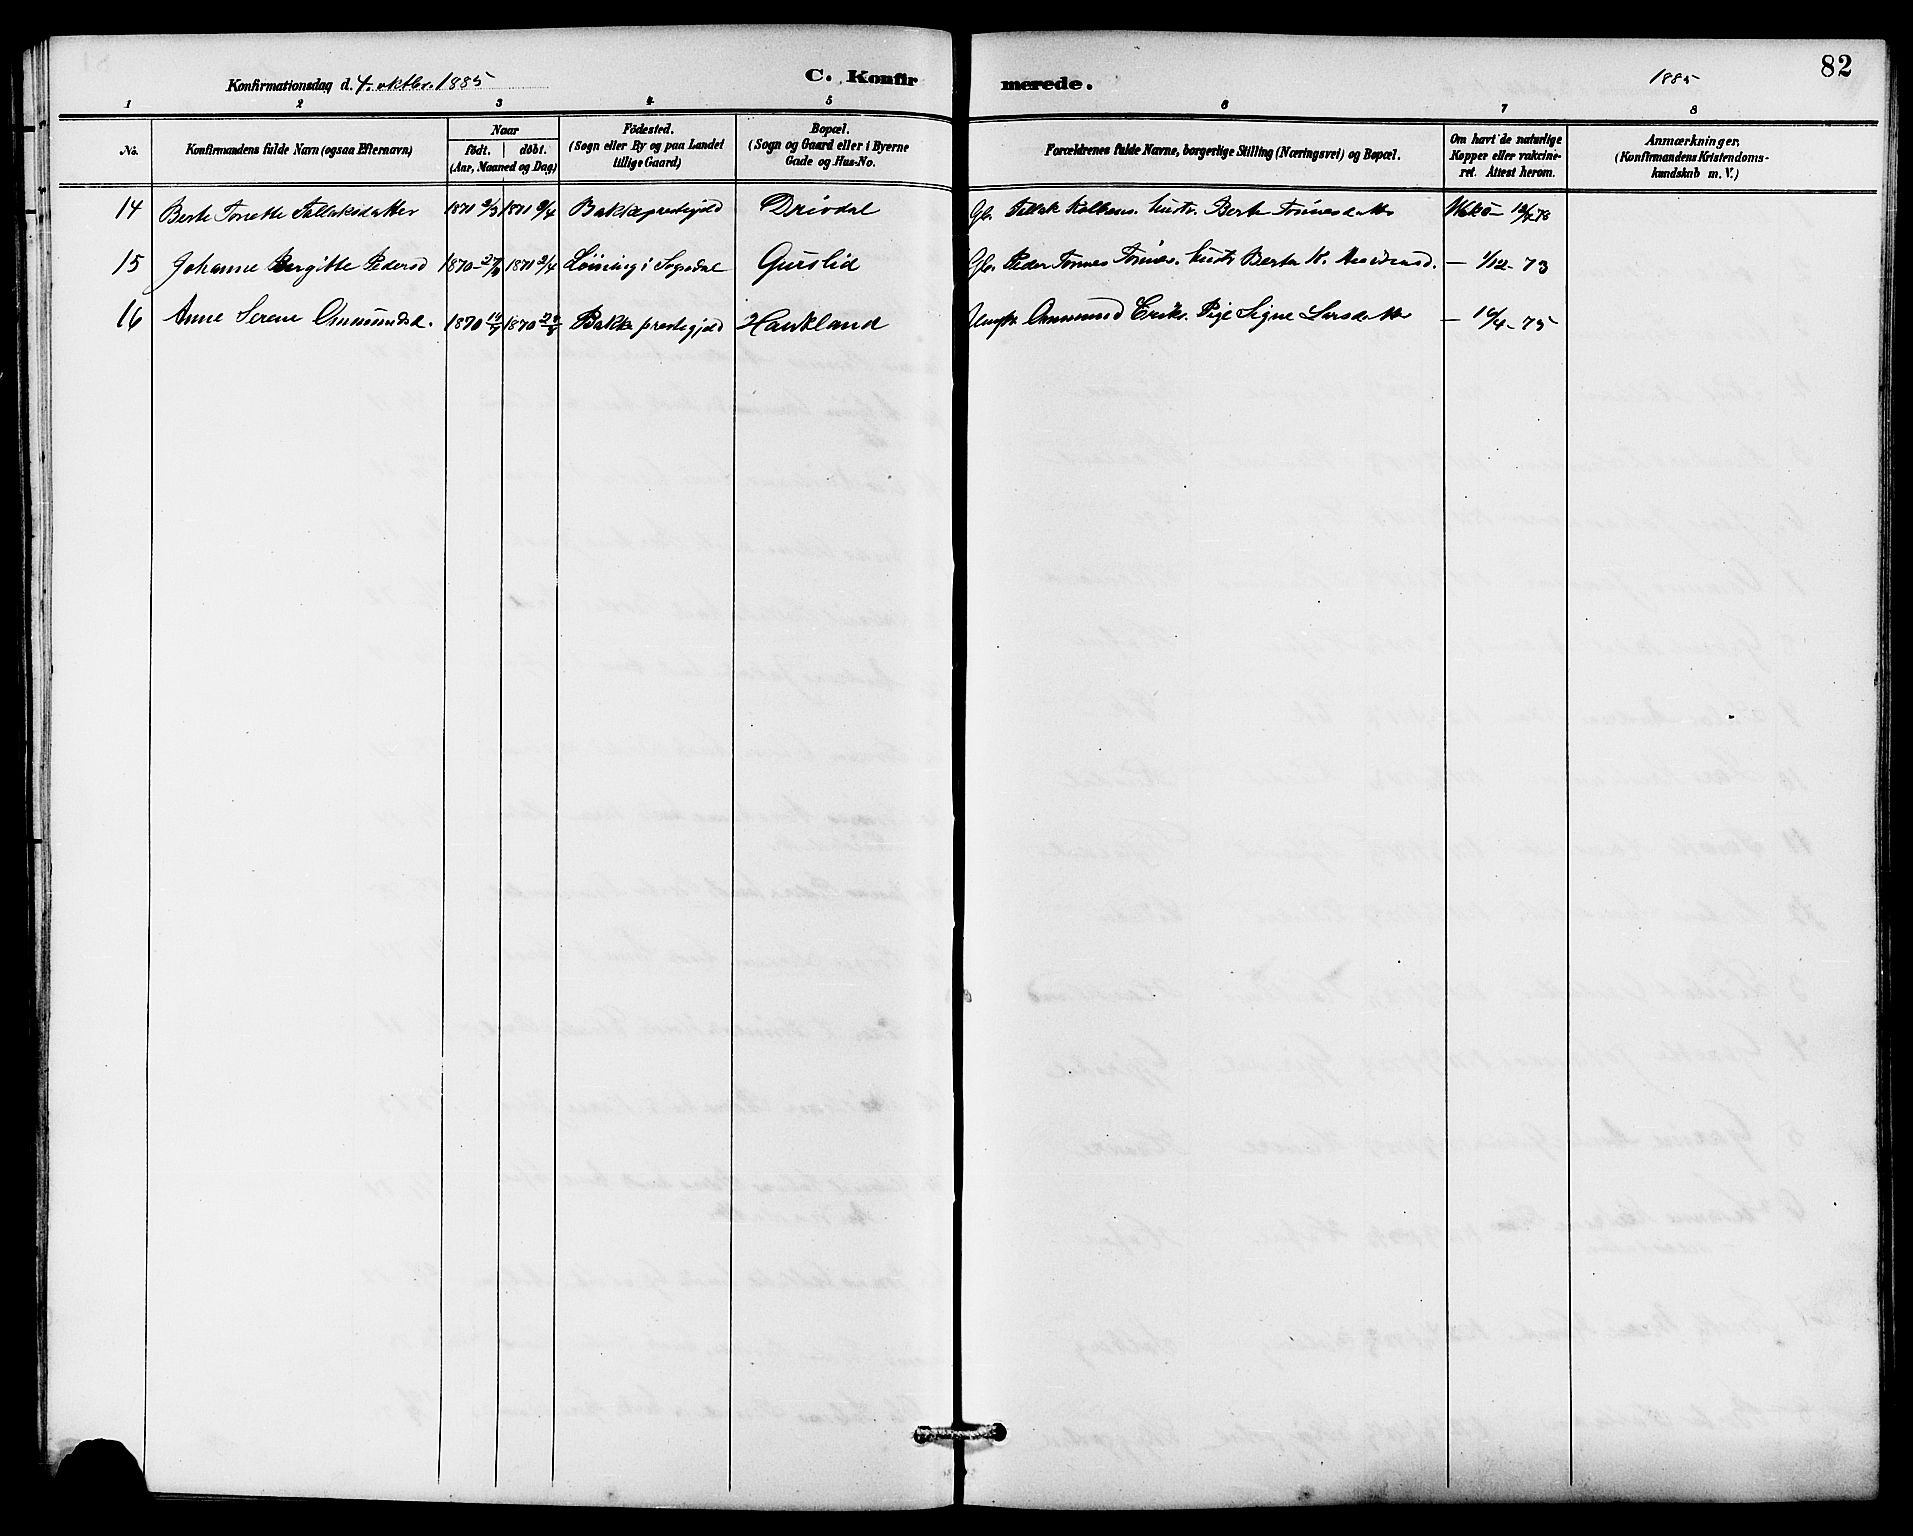 82
Konfirmationsdag d. 4. oktbr. 1885
C. Konfirmerede.
1885
1 2 3 4 5 6 7 8
No.
Konfirmandens fulde Navn (ogsaa Efternavn)
Naar
født. | døbt.
(Aar, Maaned og Dag)
Fødested.
(Sogn eller By og paa Landet
tillige Gaard)
Bopæl.
(Sogn og Gaard eller i Byerne
Gade og Hus-No.
Forældrenes fulde Navne, borgerlige Stilling (Næringsvei) og Bopæl.
Om havt de naturlige
Kopper eller vakcine-
ret. Attest herom.
Anmærkninger.
(Konfirmandens Kristendoms-
kundskab m. V.)
14 Berte Tonette Tallaksdatter 1871 9/3 1871 9/4 Bakke prestegjeld Drivdal Gbr. Tallak Hustr. Berte Tønnesdatter
15 Johanne Bergitte Pedersd 1870 1871 2/4 i Sogndal Guslid Gbr. Peder Tønnes Hustr Berte K. — 1/12 - 73
16 Anne Serene Ommundsd. 1870 1870 Bakke prestegjeld Haukland Ommund Eriks. Pige Signe Larsdatter — 16/4 - 75